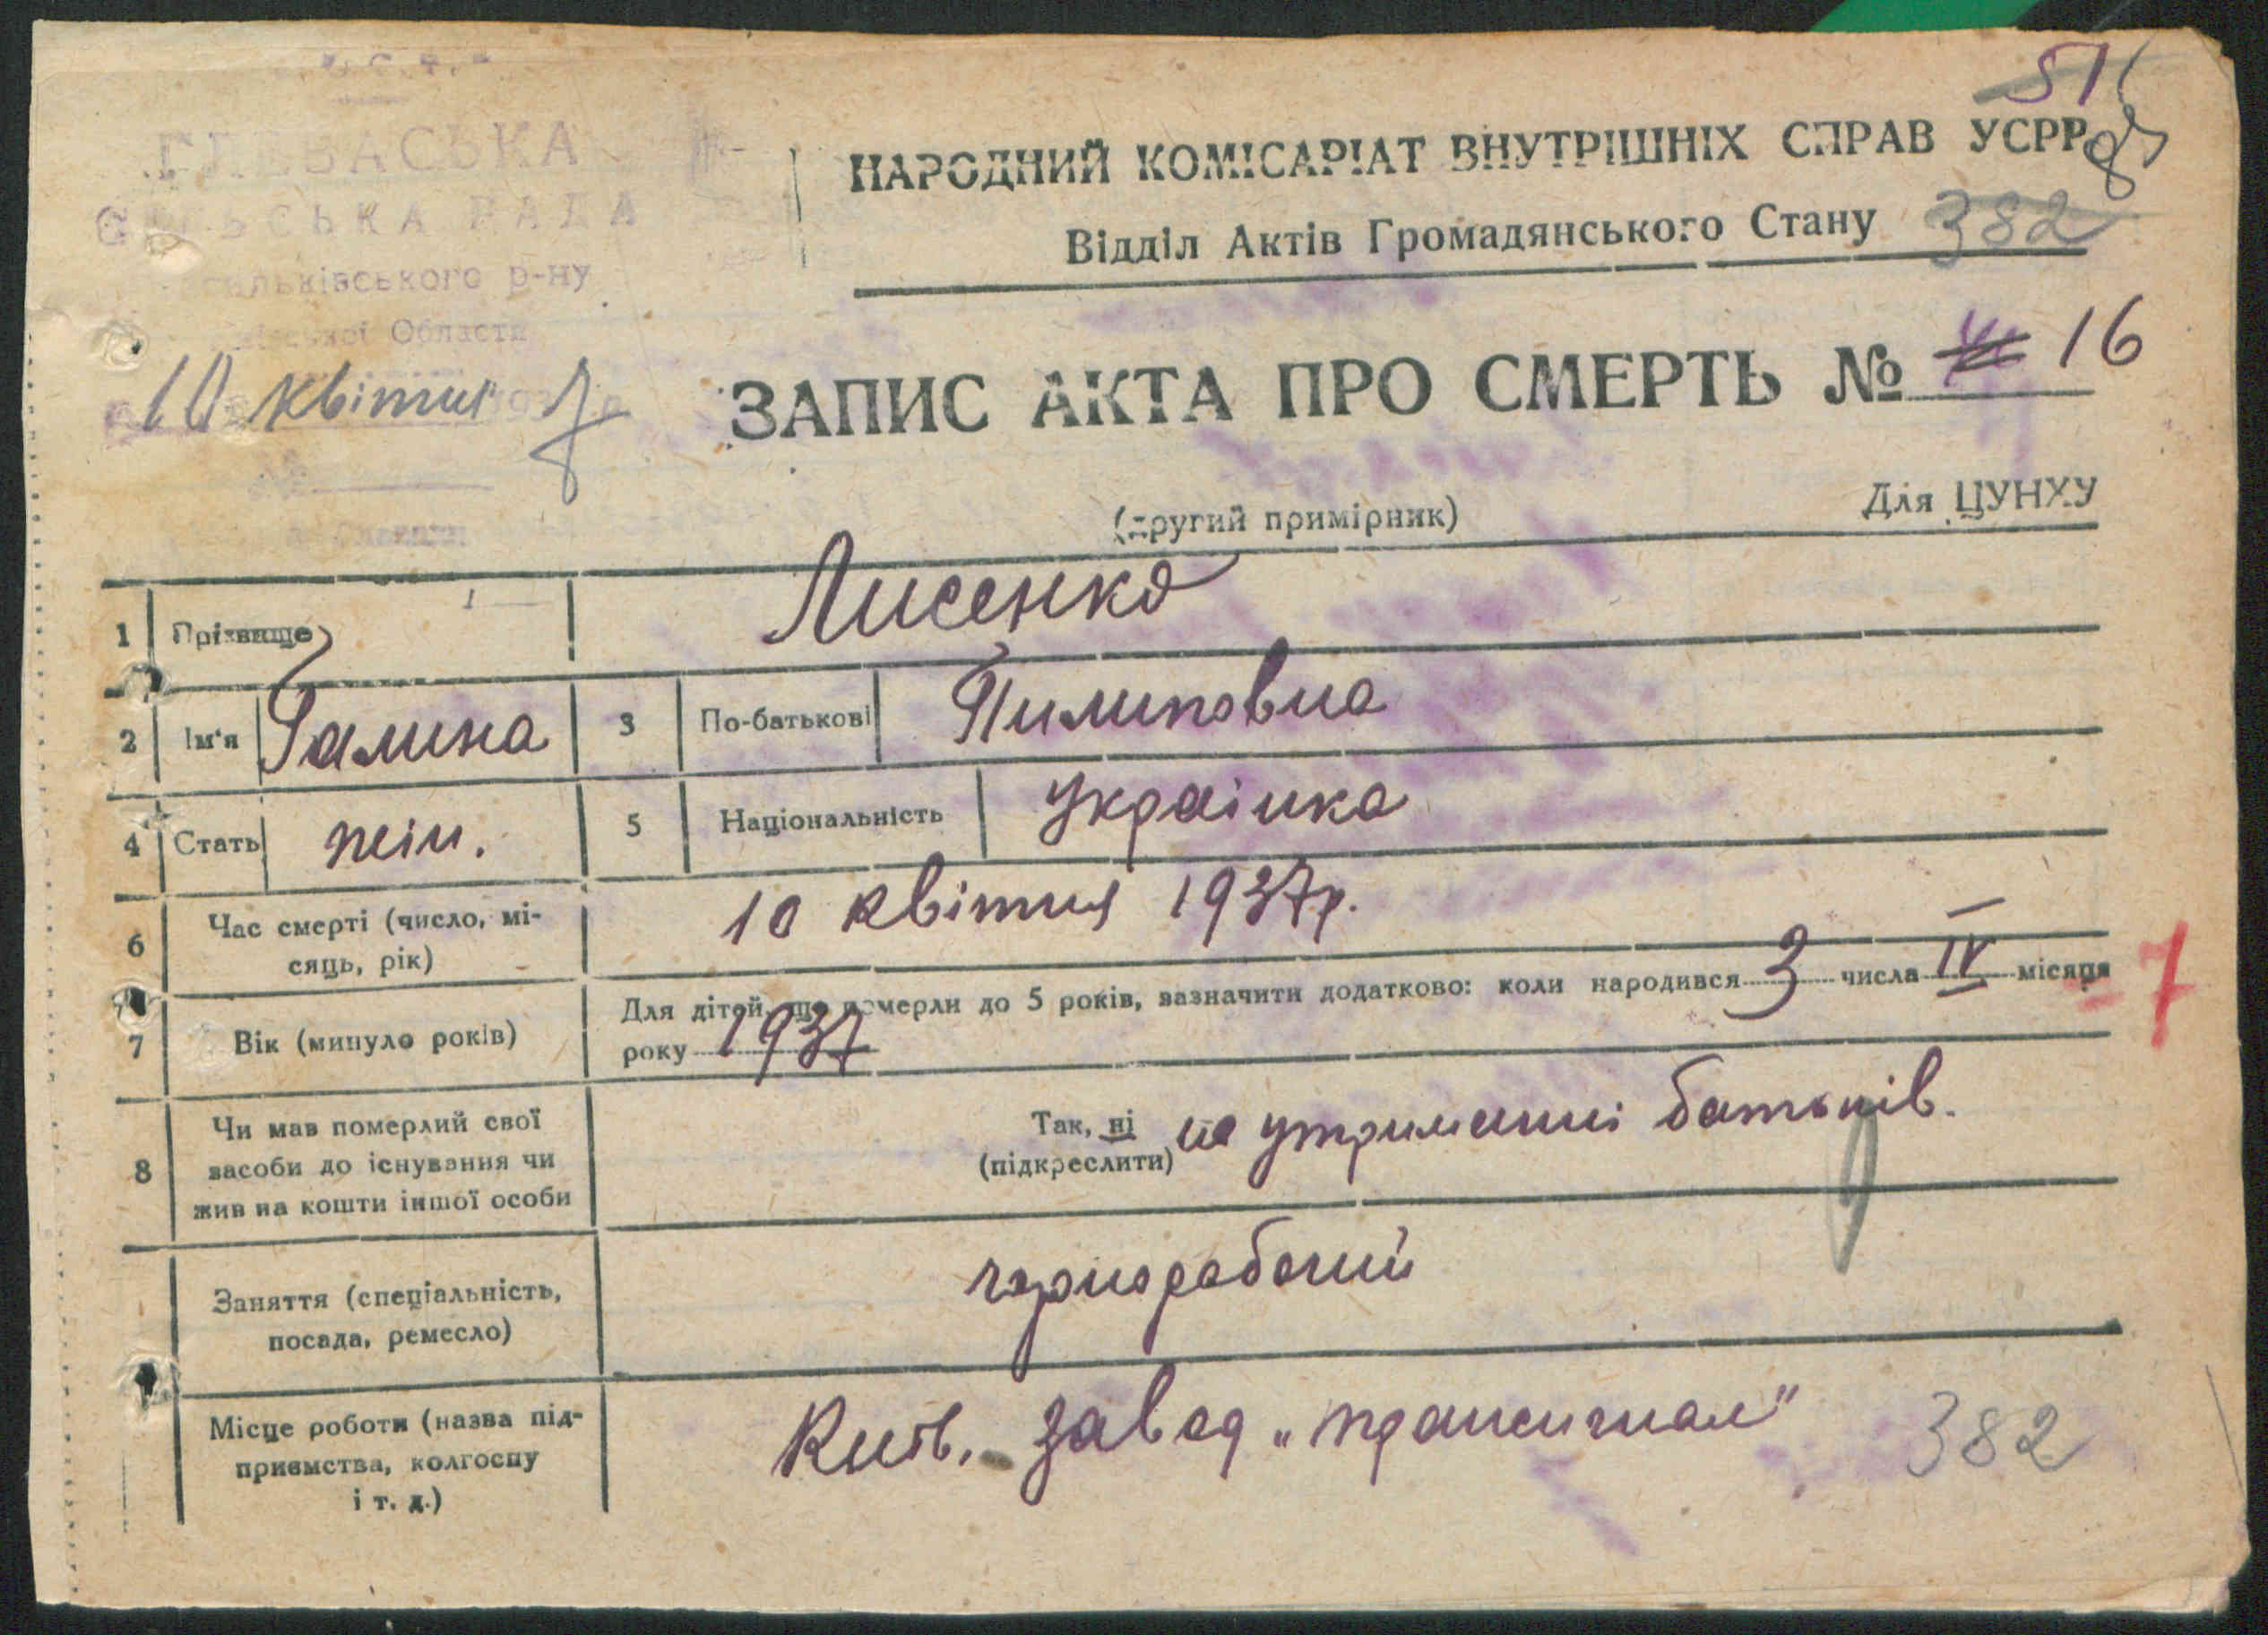 ГЛЕВАСЬКА
СІЛЬСЬКА РАДА
р-ну
Області
10 квітня 7
51
НАРОДНИЙ КОМІСАРІАТ ВНУТРІШНІХ СПРАВ УСРР
Відділ Актів Громадянського Стану 382
ЗАПИС АКТА ПРО СМЕРТЬ № 16
(другий примірник)
Для ЦУНХУ
1 Прізвище Лисенко
2 Ім'я Галина 3 По-батькові Пилиповна
4 Стать жін. 5 Національність Українка
6 Час смерті (число, мі-
сяць, рік) 10 квітня 1937р.
7 Вік (минуло років) Для дітей, що померли до 5 років, зазначити додатково: коли народився 3 числа IV місяця
року 1937
7
8 Чи мав померлий свої
засоби до існування чи
жив на кошти іншої особи
Так, ні на утриманні батьків.
(підкреслити)
Заняття (спеціальність,
посада, ремесло) чорнорабочий
Місце роботи (назва під-
приємства, колгоспу
і т. д.)
Київ. завод „Трансигнал"
382